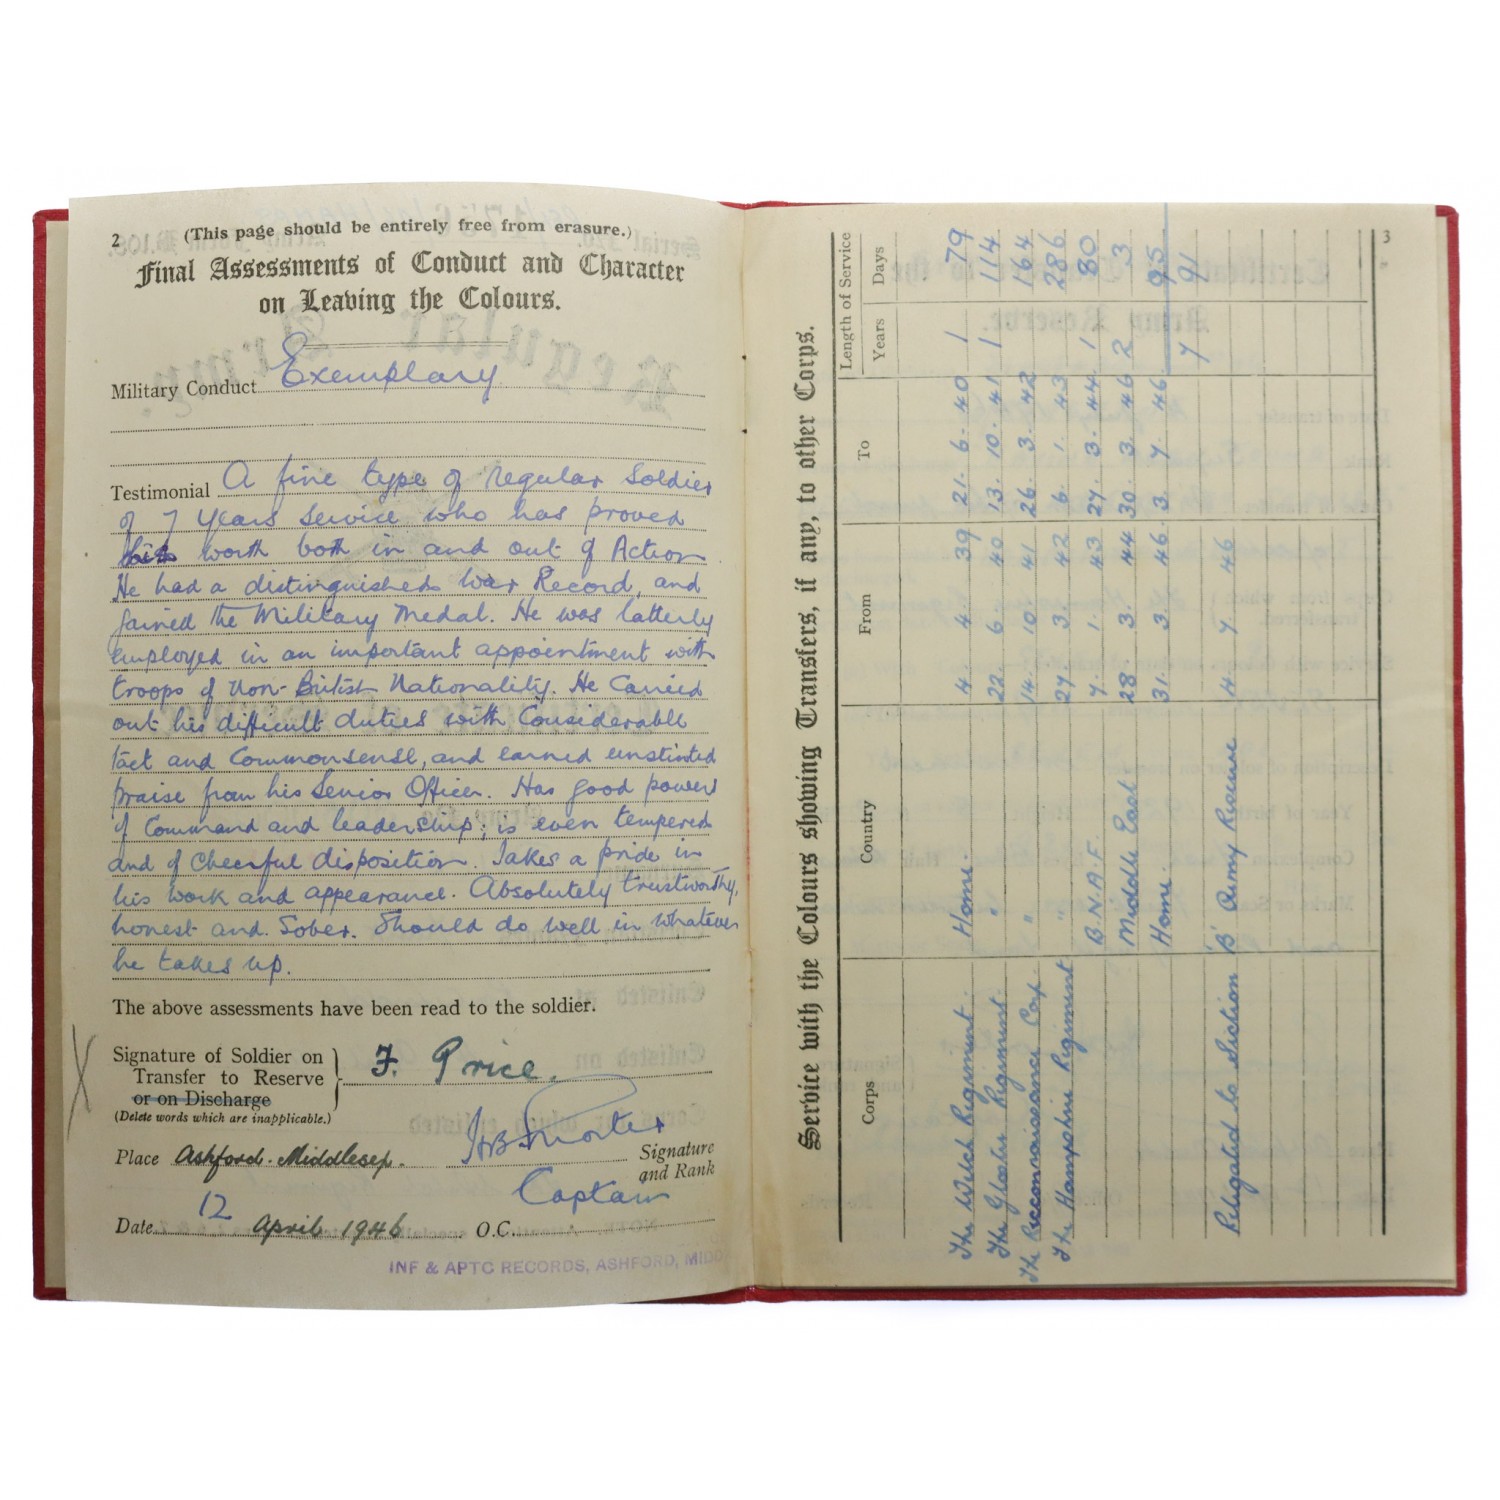 2 (This page should be entirely free from erasure.)
Final Assessments of Conduct and Character
on Leaving the Colours.
Military Conduct Exemplary
Testimonial A fine type of regular Soldier
of 7 Years Service who has proved
his worth both in and out of Action
He had a distinguished War Record, and
gained the Military Medal. He was latterly
employed in an important appointment with
troops of Non-British Nationality. He Carried
out his difficult duties with Considerable
tact and Commonsense, and earned unstinted
praise from his Senior Officer. Has good power
of Command and leadership; is even tempered
and of Cheerful disposition. Takes a pride in
his work and appearance. Absolutely trustworthy,
honest and Sober. Should do well in whatever
he takes up.
The above assessments have been read to the soldier.
Signature of Soldier on
Transfer to Reserve
or on Discharge
(Delete words which are inapplicable.)
F. Price.
Place Ashford. Middlesex.
Signature
and Rank
Captain
Date 12 April 1946 O.C.
INF & APTC RECORDS, ASHFORD, MIDD
3
Service with the Colours showing Transfers, if any, to other Corps.
Corps Country From To Length of Service
Years Days
The Welch Regiment. Home. 4. 4. 39 21. 6. 40 1 79
The Gloster Regiment. " 22. 6. 40 13. 10. 41 1 114
The Reconnaissance Corp. " 14. 10. 41 26. 3. 42 164
The Hampshire Regiment " 27. 3. 42 6. 1. 43 286
B.N.A.F. 7. 1. 43 27. 3. 44 1 80
Middle East. 28. 3. 44 30. 3. 46 2 3
Home. 31. 3. 46 3. 7. 46 95
7 91
Relegated to Section 'B' Army Reserve 4. 7. 46